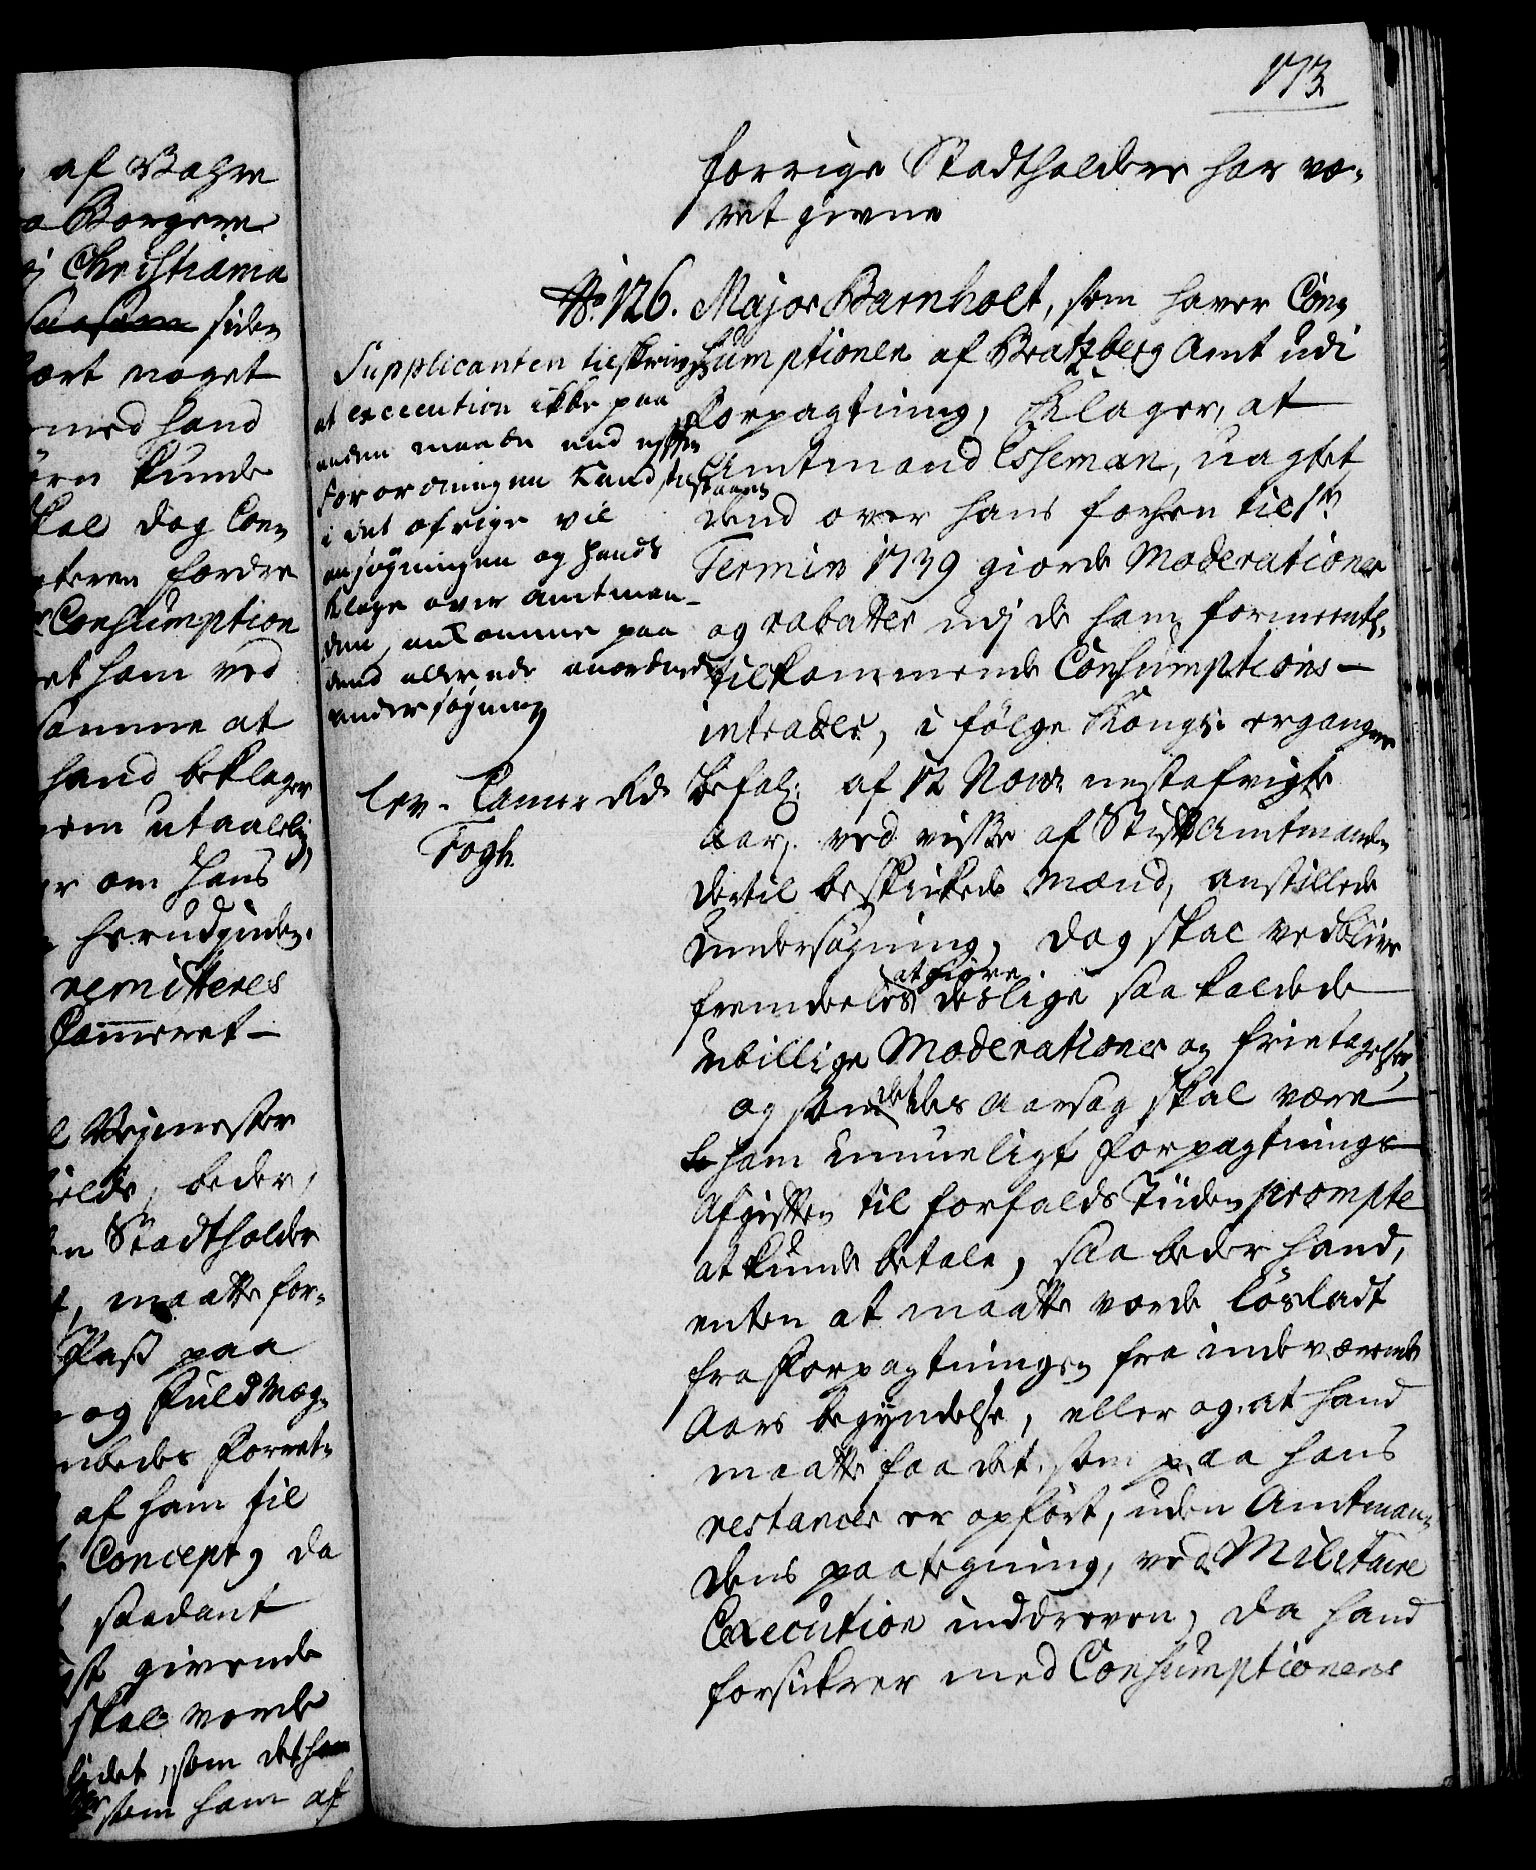 173
forrige Stadtholdere har væ-
ret givne
No 126. Major Barnholt, som haver Con-
sumptionen af Bratzberg Amt udi
Forpagtning, Klager, at
Amtmand Esseman, uagtet
dend over hans forhen til 1te
Termin 1739 giorde Moderationer
og rabatter udj de ham formentl.
tilkommende Consumptions-
intrader, i følge Kongl: ergangne
befal: af 12 Novr nestafvigte
Aar, ved visse af Stiftamtmanden
dertil beskikkede Mænd, anstillede
Undersøgning, dog skal vedblive
fremdeeles at giøre deslige saa kaldede
ubillige Moderationer og frietagelser,
og som dette des Aarsag skal være
ham umueligt Forpagtnings
Afgiften til forfalds Tiiden prompte
at kunde betale, saa beder hand,
enten at maatte vorde løsladt
fra Forpagtningen fra indeværende
Aars begyndelse, eller og at hand
maatte faa det, som paa hans
restancer er opført, uden Amtman-
dens paategning, ved Militaire
Execution inddreven, da hand
forsikrer med Consumptionens
Supplicanten tilskrives
at execution ikke paa
anden maade end efter
Forordningen Kand tilstaaes
i det øfrige vil
ansøgningen og hands
Klage over Amtman-
den, ankomme paa
dend allerede anordnede
undersøgning
lev. Camer Rd
Fogh.
af Vahre
Borgere
Christiania
siden
ort noget
med hand
ørn kunde
skal dog Con-
teren fordre
Consumption
et ham ved
samme at
hand beklager
em utaalelig
er om hans
herudjnden.
remitteres
Cammeret-
Vejmester
ielde, beder,
en Stadtholder
t, maatte for-
Pass paa
og Fuldmæg-
mbedes Forret-
af ham til
Concept, da
saadant
st givende
skal vorde
lidet, som det ham
som ham af